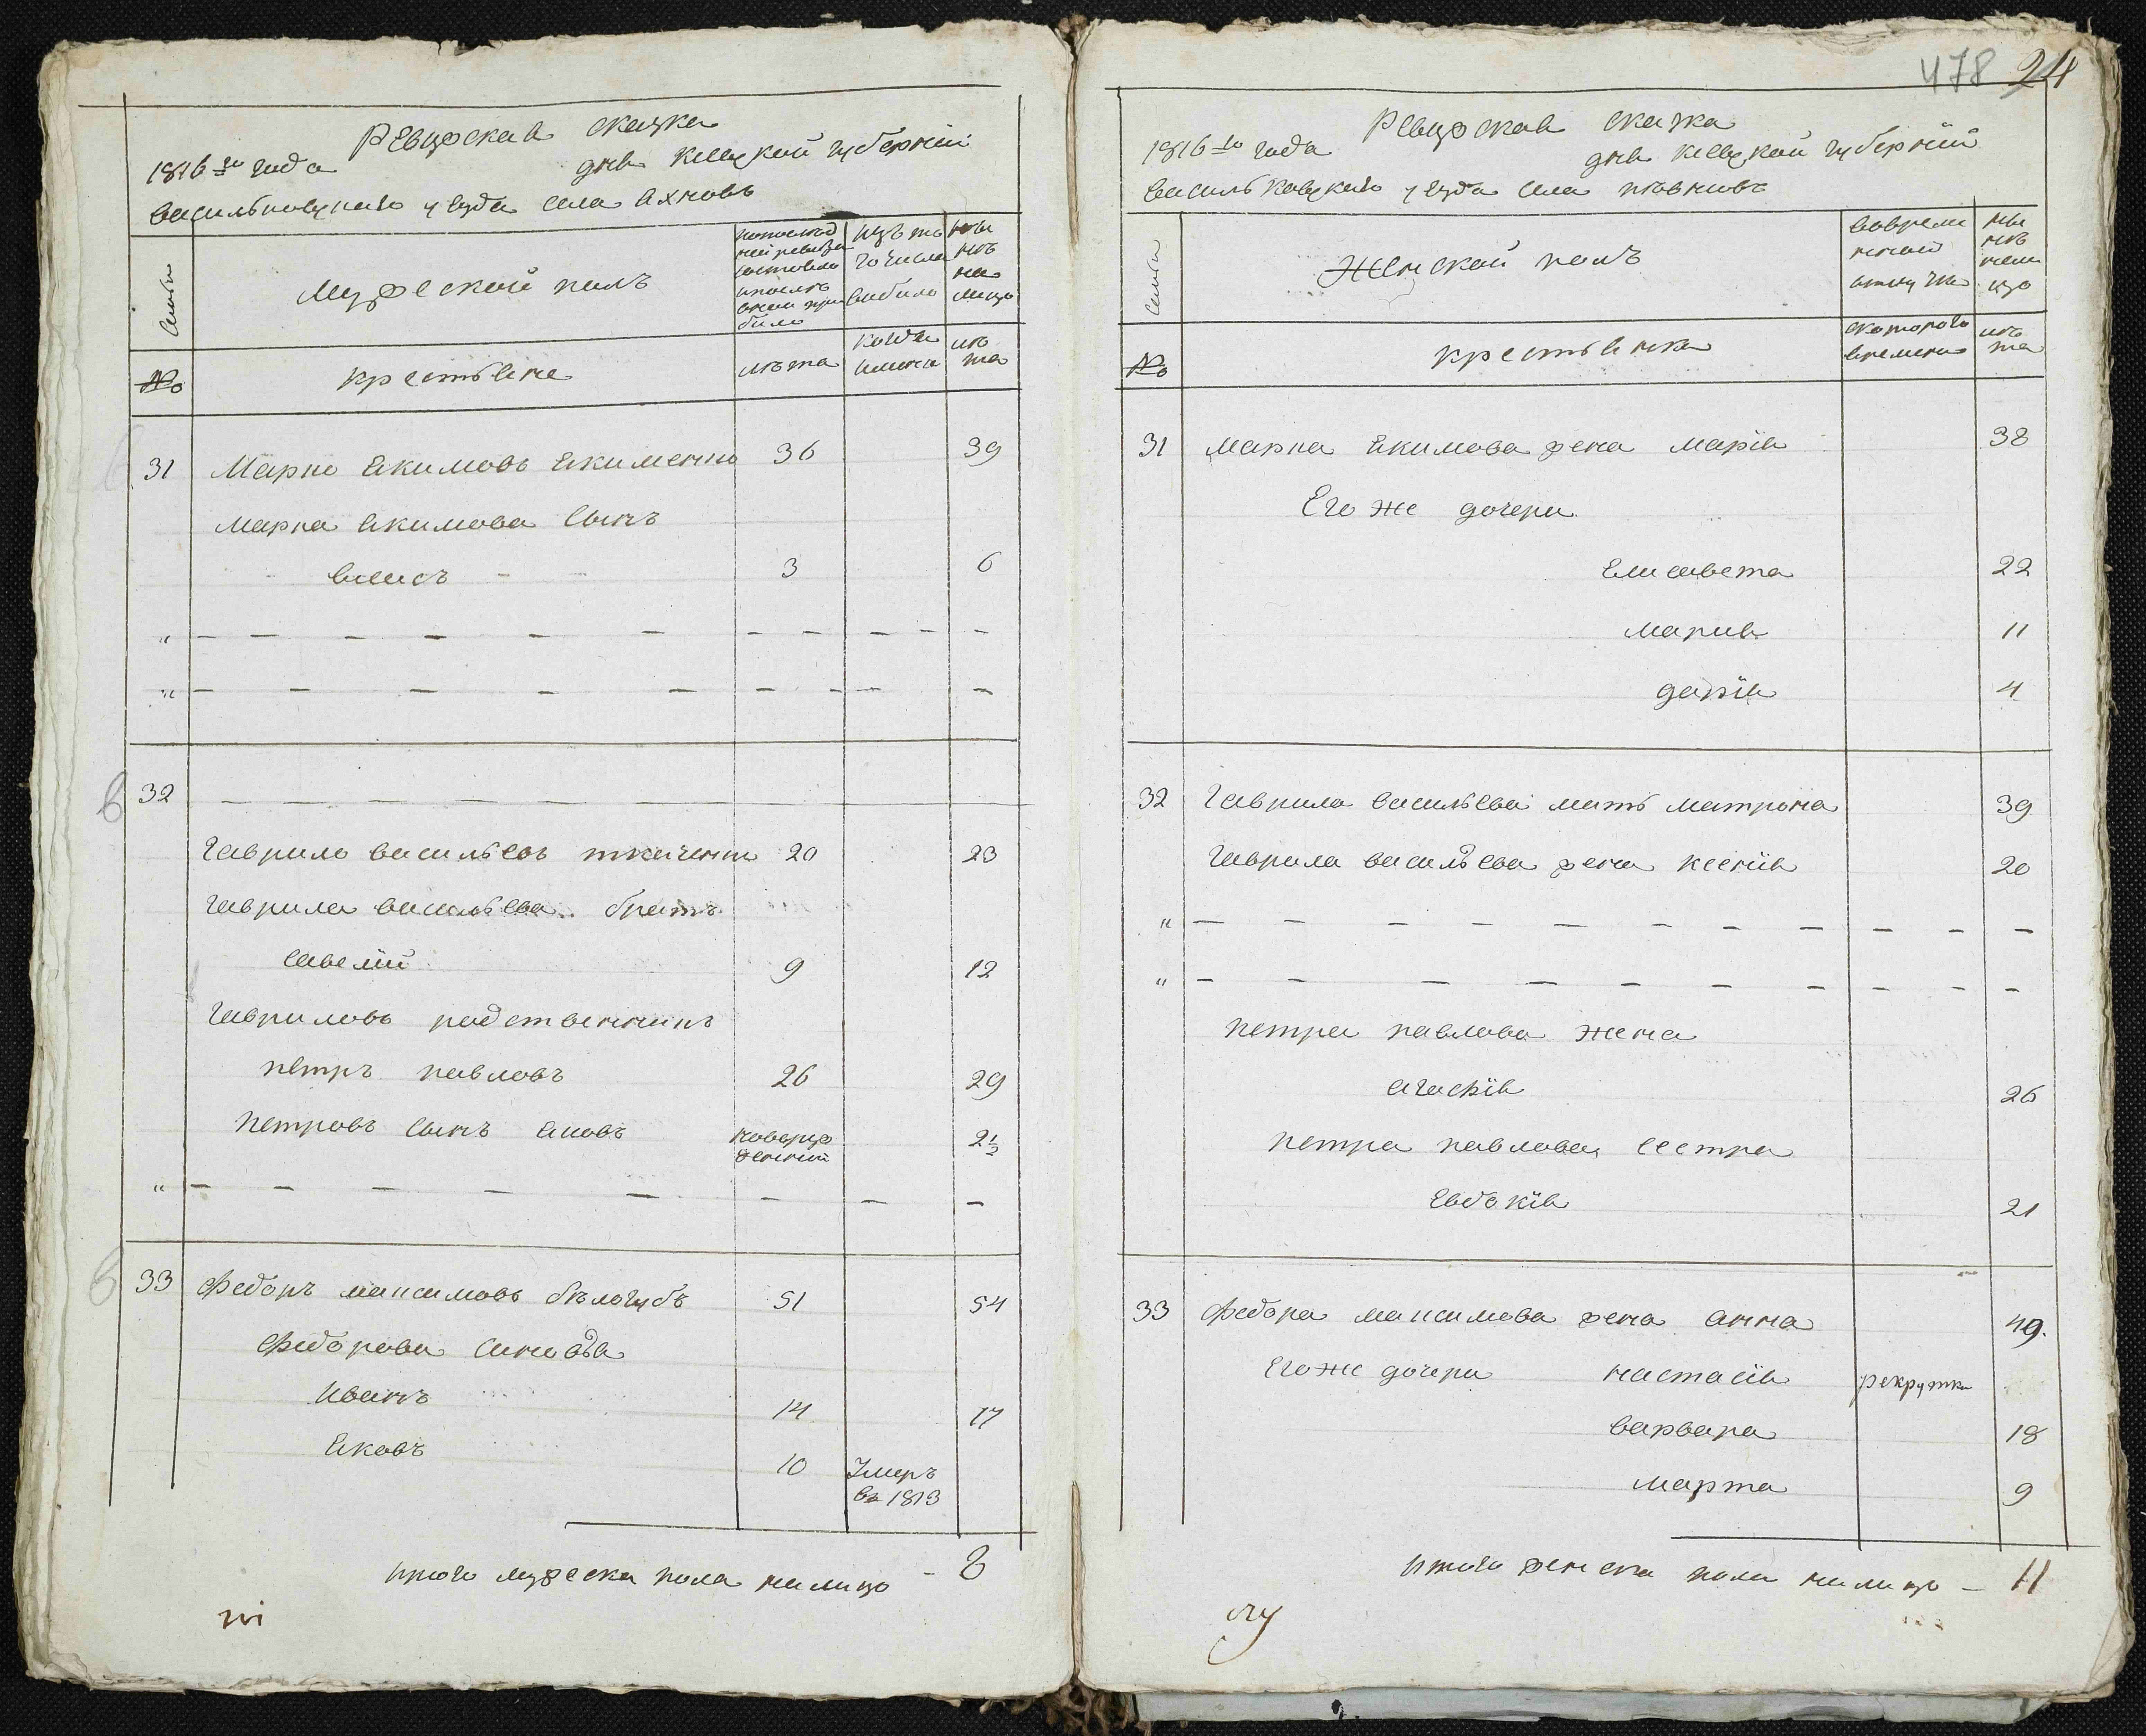 Ревизская сказка
1816го года дня Киевской губернии
Васильковского уезда села Яхновъ
Семьи
Мужеской полъ
по последней ревизии состояло и после оной прибыло
изъ того числа выбыло
ныне на лицо
№
крестьяне
лета
когда именно
лета
31 Марко Якимовъ Якименко 36 39
Марка Якимова сынъ
власъ - 3 6
" — — — — — — — — — — —
" — — — — — — — — —
32 — — — — — — — —
Гаврило васильевъ ткаченко 20 23
Гаврила васильева братъ
савелій 9 12
Гавриловъ родственникъ
петръ павловъ 26 29
Петровъ сынъ яковъ новорожденний 2½
" — — — — — — — —
33 Федоръ максимовъ белогубъ 51 54
Федорова синовья
Иванъ 14 17
Яковъ 10 Умеръ въ 1813
итого мужеска пола налицо - 8
478 24
Ревизская сказка
1816го года дня Киевской губерніи
Васильковского уезда села
Семьи
Женской полъ
во временной отлучке
ныне на лицо
№
крестьянки
с которого времени
лета
31 марка Якимова жена марія 38
Его же дочери
Елисавета 22
марія 11
дарія 4
32 Гаврила васильева мать матрона 39
Гаврила васильева жена ксенія 20
" — — — — — — — — — — —
" — — — — — — — — — —
петра павлова жена
агафія 26
петра павлова сестра
Евдокія 21
33 Федора максимова жена анна 49.
Его же дочери настасія рекрутка
варвара 18
марта 9
итого женска пола налицо — 11